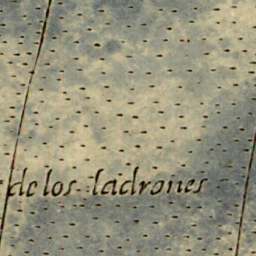 de los ladrones